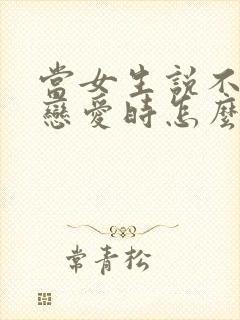 當女生說不
戀愛時怎麼
常青松